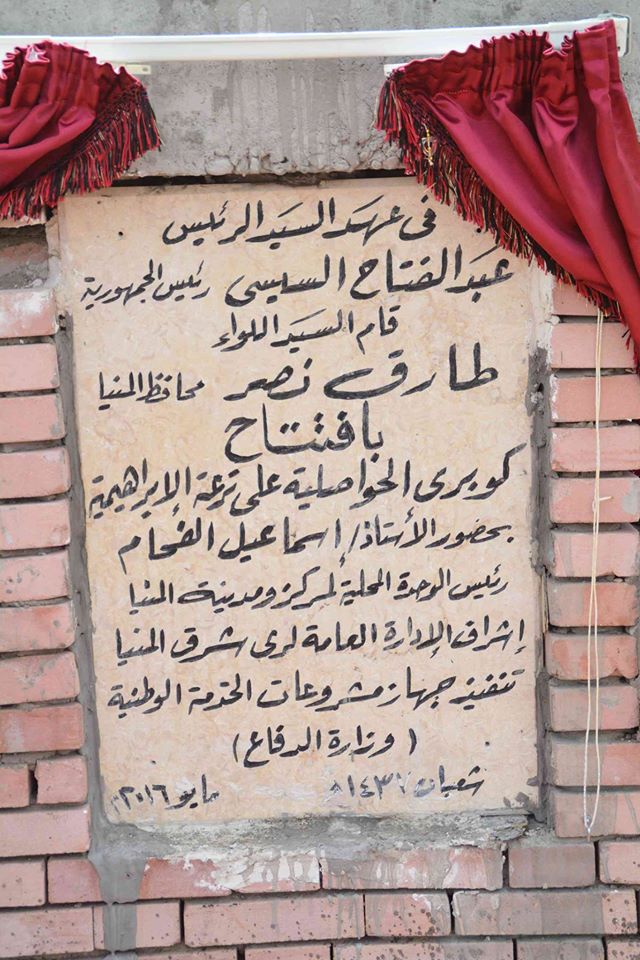 فى عهد السيد الرئيس
عبد الفتاح السيسى رئيس الجمهورية
قام السيد اللواء
طارق نصر محافظ المنيا
بافتتاح
كوبرى الحواصلية على ترعة الإبراهيمية
بحضور الأستاذ/ إسماعيل الفحام
رئيس الوحدة المحلية لمركز ومدينة المنيا
إشراف الإدارة العامة لرى شرق المنيا
تنفيذ جهاز مشروعات الخدمة الوطنية
(وزارة الدفاع)
شعبان ١٤٣٧ه مايو ٢٠١٦م